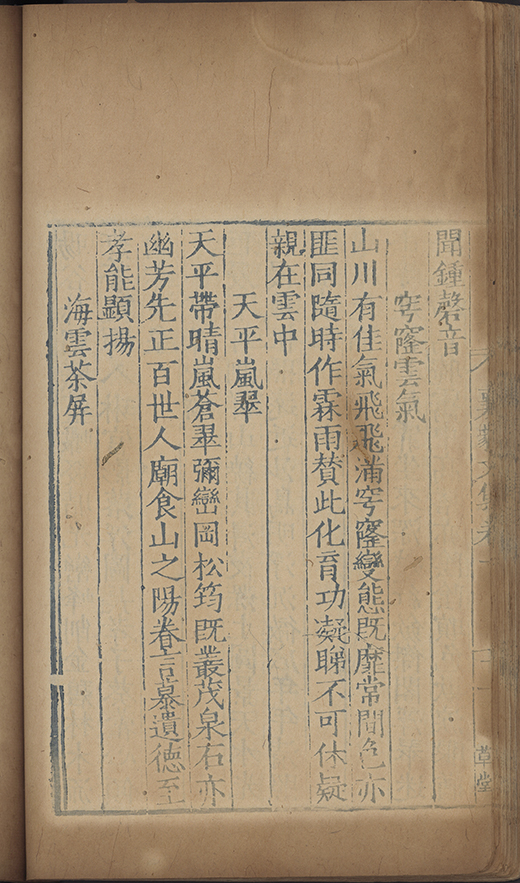 聞鍾磬音
穹窿雲氣
山川有佳氣飛飛滿穹窿變態既靡常間色亦
匪同隨時作霖雨贊此化育功凝睇不可休疑
親在雲中
天平嵐翠
天平帶晴嵐蒼翠彌巒岡松筠既叢茂泉石亦
幽芳先正百世人廟食山之陽眷言慕遺德至
孝能顯揚
海雲茶屏
草堂